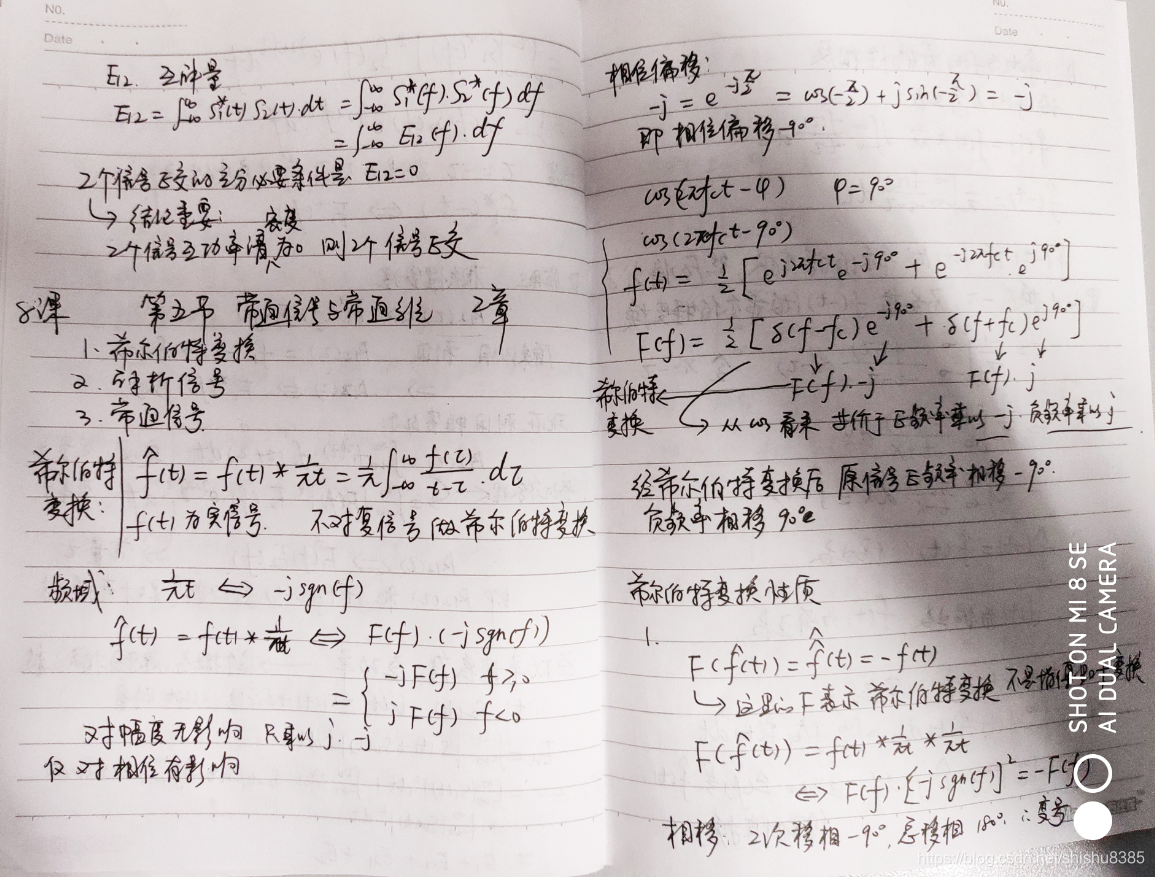 No.
Date
E12 互能量
E12 = ∫_{-∞}^{∞} S1*(t) S2(t)·dt = ∫_{-∞}^{∞} S1*(f)·S2*(f) df
= ∫_{-∞}^{∞} E12(f)·df
2个信号正交的充分必要条件是 E12=0
↳ 结论重要: 密度
2个信号互功率谱为0 则2个信号正交
8课 第五节 带通信号与带通系统 2章
1. 希尔伯特变换
2. 解析信号
3. 带通信号
希尔伯特
变换:
f̂(t) = f(t) * 1/πt = 1/π ∫_{-∞}^{∞} f(τ)/(t-τ)·dτ
f(t) 为实信号. 不对复信号做希尔伯特变换
频域: 1/πt ⇔ -j sgn(f)
f̂(t) = f(t) * 1/πt ⇔ F(f)·(-j sgn(f))
= { -jF(f) f≥0
jF(f) f<0
对幅度无影响 只乘以 j. -j
仅对相位有影响
No.
Date
相位偏移:
-j = e^{-jπ/2} = cos(-π/2) + j sin(-π/2) = -j
即相位偏移-90°.
cos(2πfct - φ) φ = 90°
cos(2πfct - 90°)
f(t) = 1/2 [e^{j2πfct} e^{-j90°} + e^{-j2πfct}·e^{j90°}]
F(f) = 1/2 [δ(f-fc)e^{-j90°} + δ(f+fc)e^{j90°}]
希尔伯特 ← F(f)·-j F(f)·j
变换 ↳ 从cos看来 等价于正频率乘以 -j. 负频率乘以 j
经希尔伯特变换后 原信号正频率相移 -90°.
负频率相移 90°
希尔伯特变换性质
1.
F(f̂(t)) = f̂̂(t) = -f(t)
↳ 这里的F表示 希尔伯特变换 不是傅里叶变换
F(f̂(t)) = f(t) * 1/πt * 1/πt
⇔ F(f)·[-j sgn(f)]² = -F(f)
相移: 2次移相 -90°, 总移相 180° ∴变号
SHOT ON MI 8 SE
AI DUAL CAMERA
https://blog.csdn.net/shishu8385